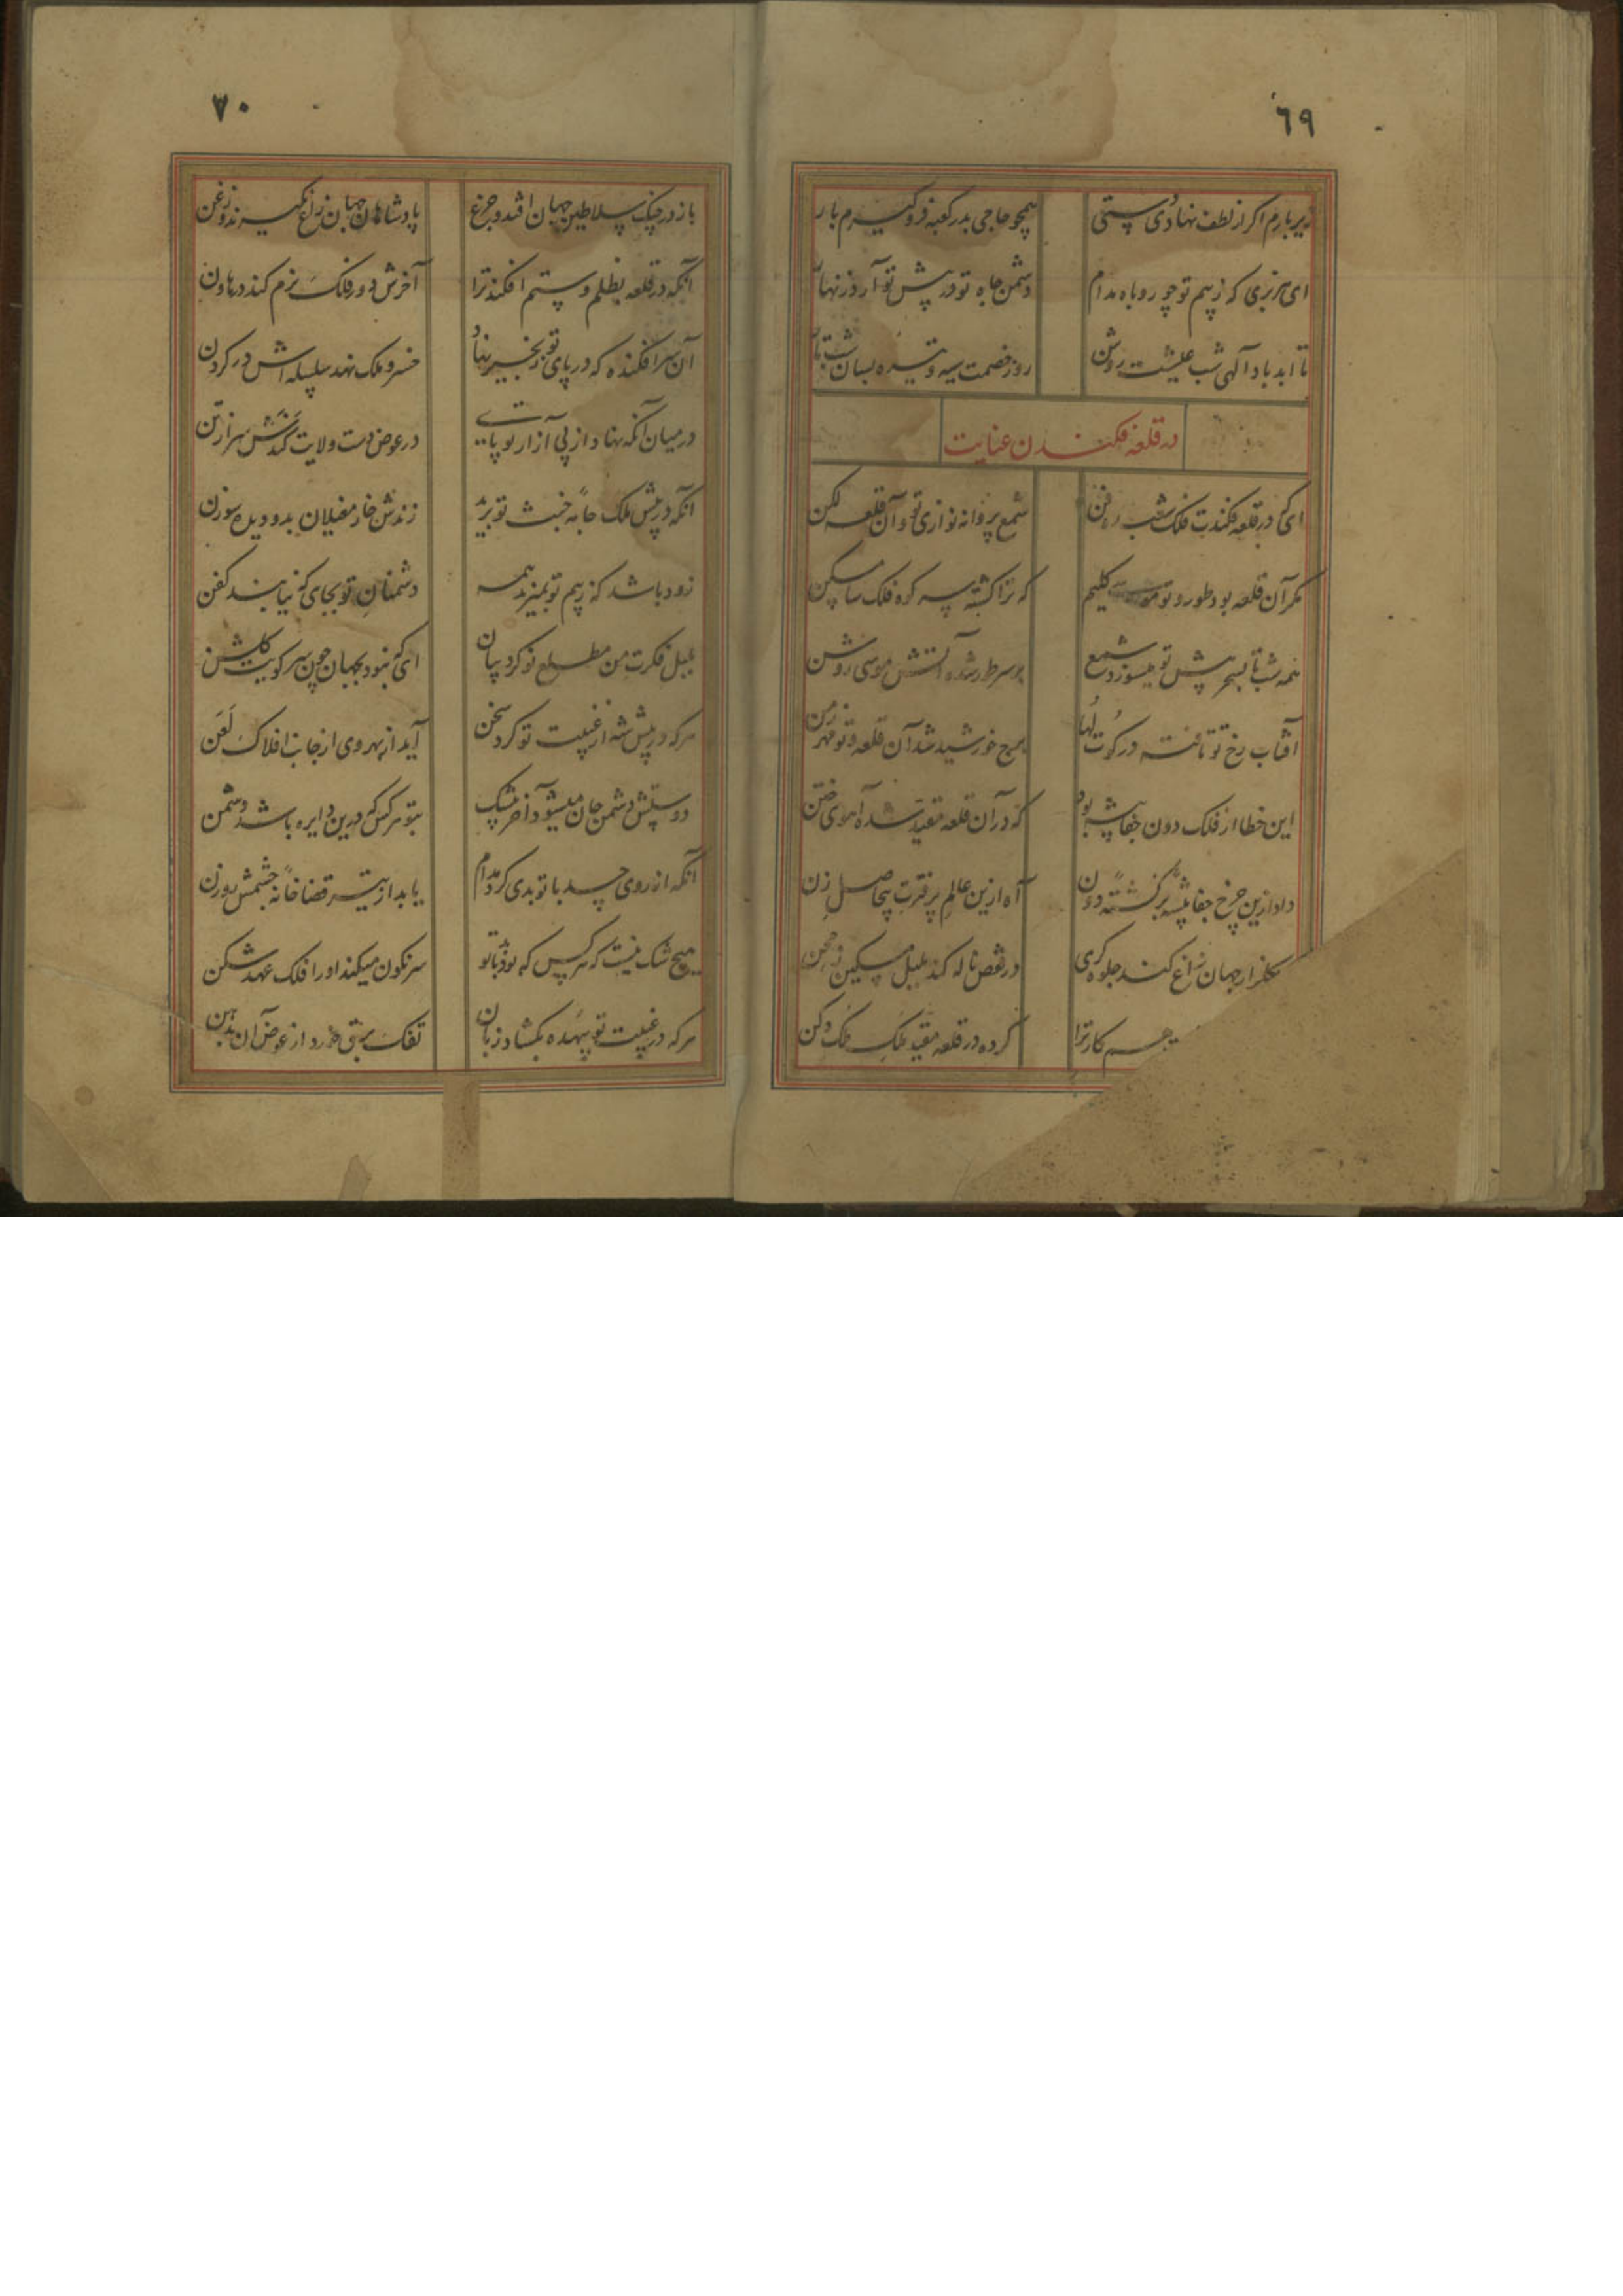 ٦٩
زیر بارم اکر از لطف نهادی دستی همچو حاجی بدر کعبه فرو کیرم بار
ای هزبری که ز بیم تو چو روباه مدام دشمن جاه تو در پیش تو آرد زنهار
تا ابد باد آلهی شب عیشت روشن روز خصمت سیه و تیره بسان شب تار
در قلعه فکندن عنایت
ای که در قلعه فکندت فلک شعبده فن شمع پروانه نوازی تو و آن قلعه لکن
مکر آن قلعه بود طور و تو موسی کلیم که ترا کشته سه کره فلک مسکن
همه شب تا بسحر پیش تو میسوزد شمع بر سر طور شده آتش موسی روشن
آفتاب رخ تو تافته در کوتلها برج خورشید شد آن قلعه و تو مهر زمن
این خطا از فلک دون جفا پیشه بود که در آن قلعه مقید شده آهوی ختن
داد ازین چرخ جفا پیشه برکشته دون آه ازین عالم پر فترت بیحاصل زن
کلزار جهان زاغ کند جلوه کری در قفص ناله کند بلبل مسکین
کار ترا کرده در قلعه مقید ملک ملک دکن
٧٠
باز در چنک سلاطین جهان افتد و چرغ پادشاهان جهان زاغ نکیرند و زغن
آنکه در قلعه بظلم و ستم افکند ترا آخرش دور فلک نرم کند در هاون
آن سرافکنده که در پای تو زنجیر نهاد خسرو ملک نهد سلسله اش در کردن
در میان آنکه نهاد از پی آزار تو پای در عوض دست ولایت کندش سر از تن
آنکه در پیش ملک جامه خبث تو برید زندش خار مغیلان بدو دیده سوزن
زود باشد که ز بیم تو بمیرند همه دشمنان تو بجای که نیابند کفن
بلبل فکرت من مطلع نو کرد بیان ای که نبود بجهان چون سر کویت کلشن
هر که در پیش شه از غیبت تو کرد سخن آید از بهر وی از جانب افلاک لعن
دوستش دشمن جان میشود آخر بیشک بتو هر کس که درین دایره باشد دشمن
آنکه از روی حسد با تو بدی کرد مدام یابد از تیر قضا خانه چشمش روزن
هیچ شک نیست که هر کس که بود با تو بد سرنکون میکند او را فلک عهد شکن
هر که در غیبت تو بیهده بکشاد زبان تفک برقی خورد از عوض آن بدهن